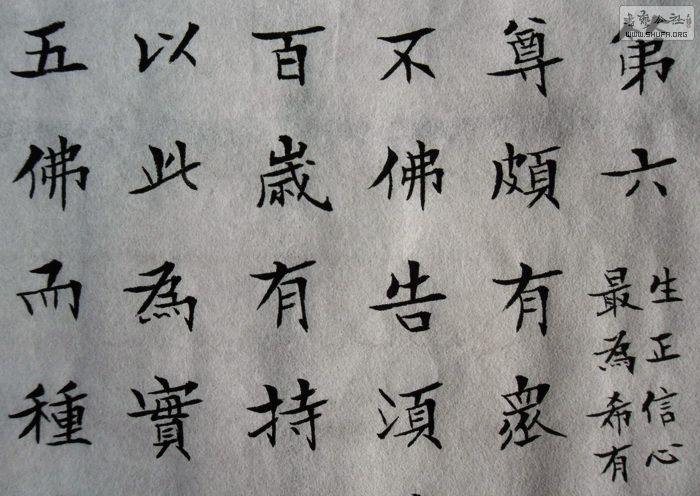 第六
生正信心
最為希有
尊頗有眾
不佛告須
百歲有持
以此為實
五佛而種
WWW.SHUFA.ORG